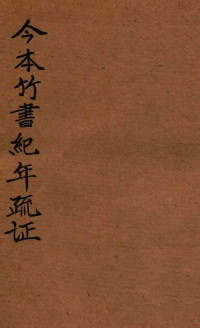 今本竹書紀年疏证